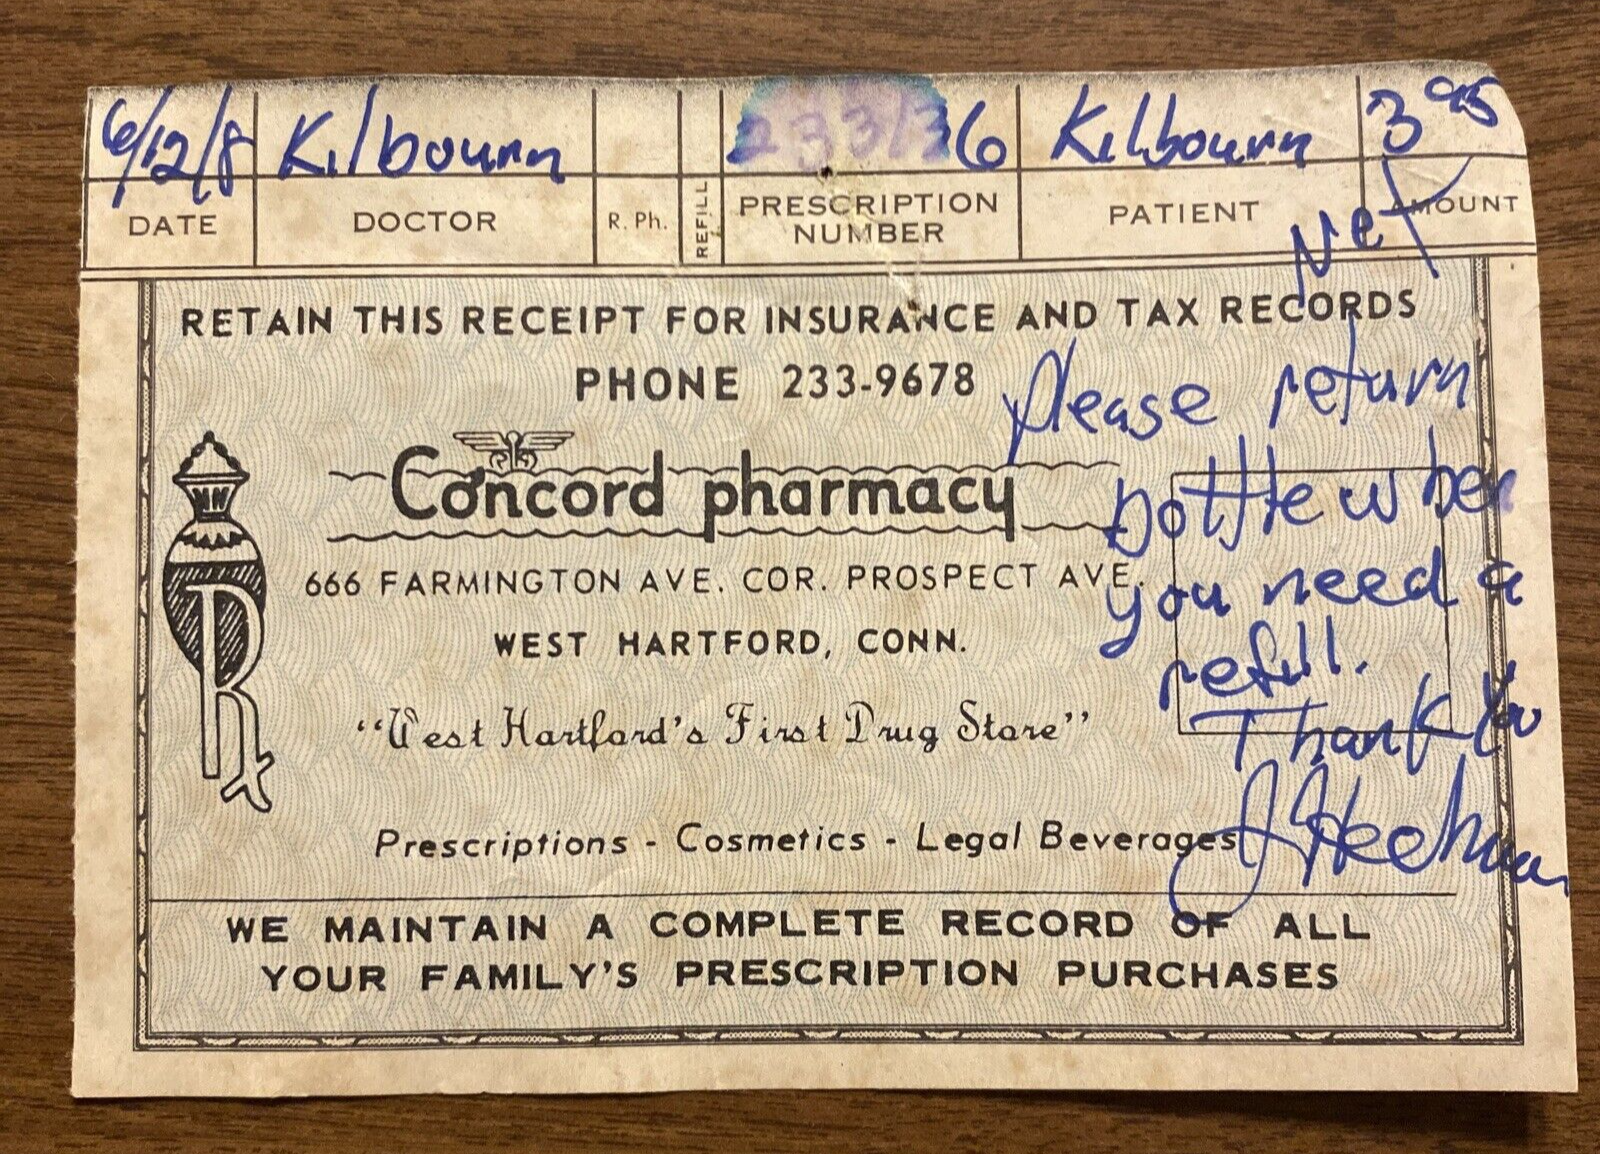 6/12/8 Kilbourn 6 Kilbourn 3 95
DATE DOCTOR R. Ph. REFILL PRESCRIPTION NUMBER PATIENT AMOUNT
Net
RETAIN THIS RECEIPT FOR INSURANCE AND TAX RECORDS
PHONE 233-9678
Please return
bottle when
you need a
refill.
Thank You
Concord pharmacy
666 FARMINGTON AVE. COR. PROSPECT AVE.
WEST HARTFORD, CONN.
"West Hartford's First Drug Store"
Rx
Prescriptions - Cosmetics - Legal Beverages
WE MAINTAIN A COMPLETE RECORD OF ALL
YOUR FAMILY'S PRESCRIPTION PURCHASES